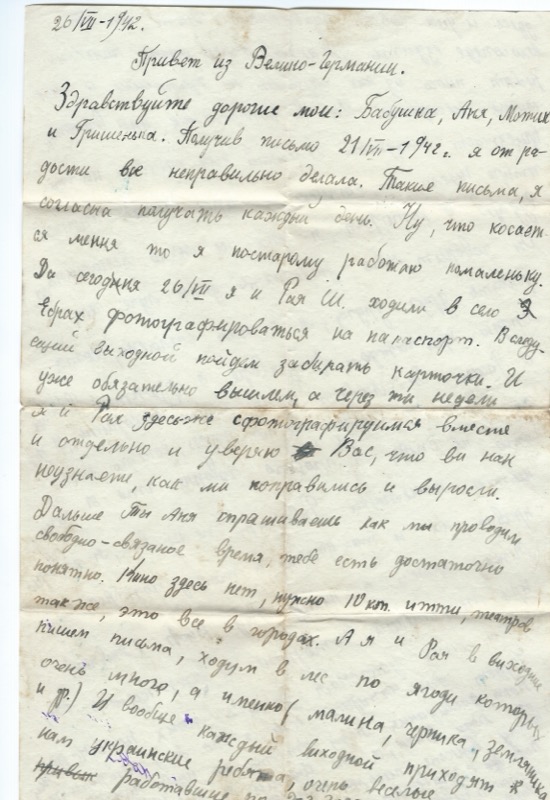 26/VII-1942.
Привет из Велико-Германии.
Здравствуйте дорогие мои: Бабушка, Аня, Мотик
и Гришенька. Получив письмо 21/VII-1942г. я от ра-
дости все неправильно делала. Такие письма, я
согласна получать каждый день. Ну, что косает-
ся меня то я постарому работаю помаленьку.
Да сегодня 26/VII я и Рая Ш. ходили в село
фотографироваться на папаспорт. В следу-
ющий выходной пойдем забирать карточки. И
уже обязательно вышлем, а через ти недели
я и Рая здесь-же сфотографируимся вместе
и отдельно и уверяю Вас, что ви нан
неузнаете, как ми поправились и выросли.
Дальше Ты Аня спрашиваешь как мы проводим
свободно-связаное время, тебе есть достаточно
понятно. Кино здесь нет, нужно 10 км. итти, театров
также, это все в городах. А я и Рая в виходние
пишем письма, ходим в лес по ягоди которых
очень много, а именно (малина, черника, земляника
и др.) И вообще каждый виходной приходят к
нам украинские ребята, очень веселые
работавшие